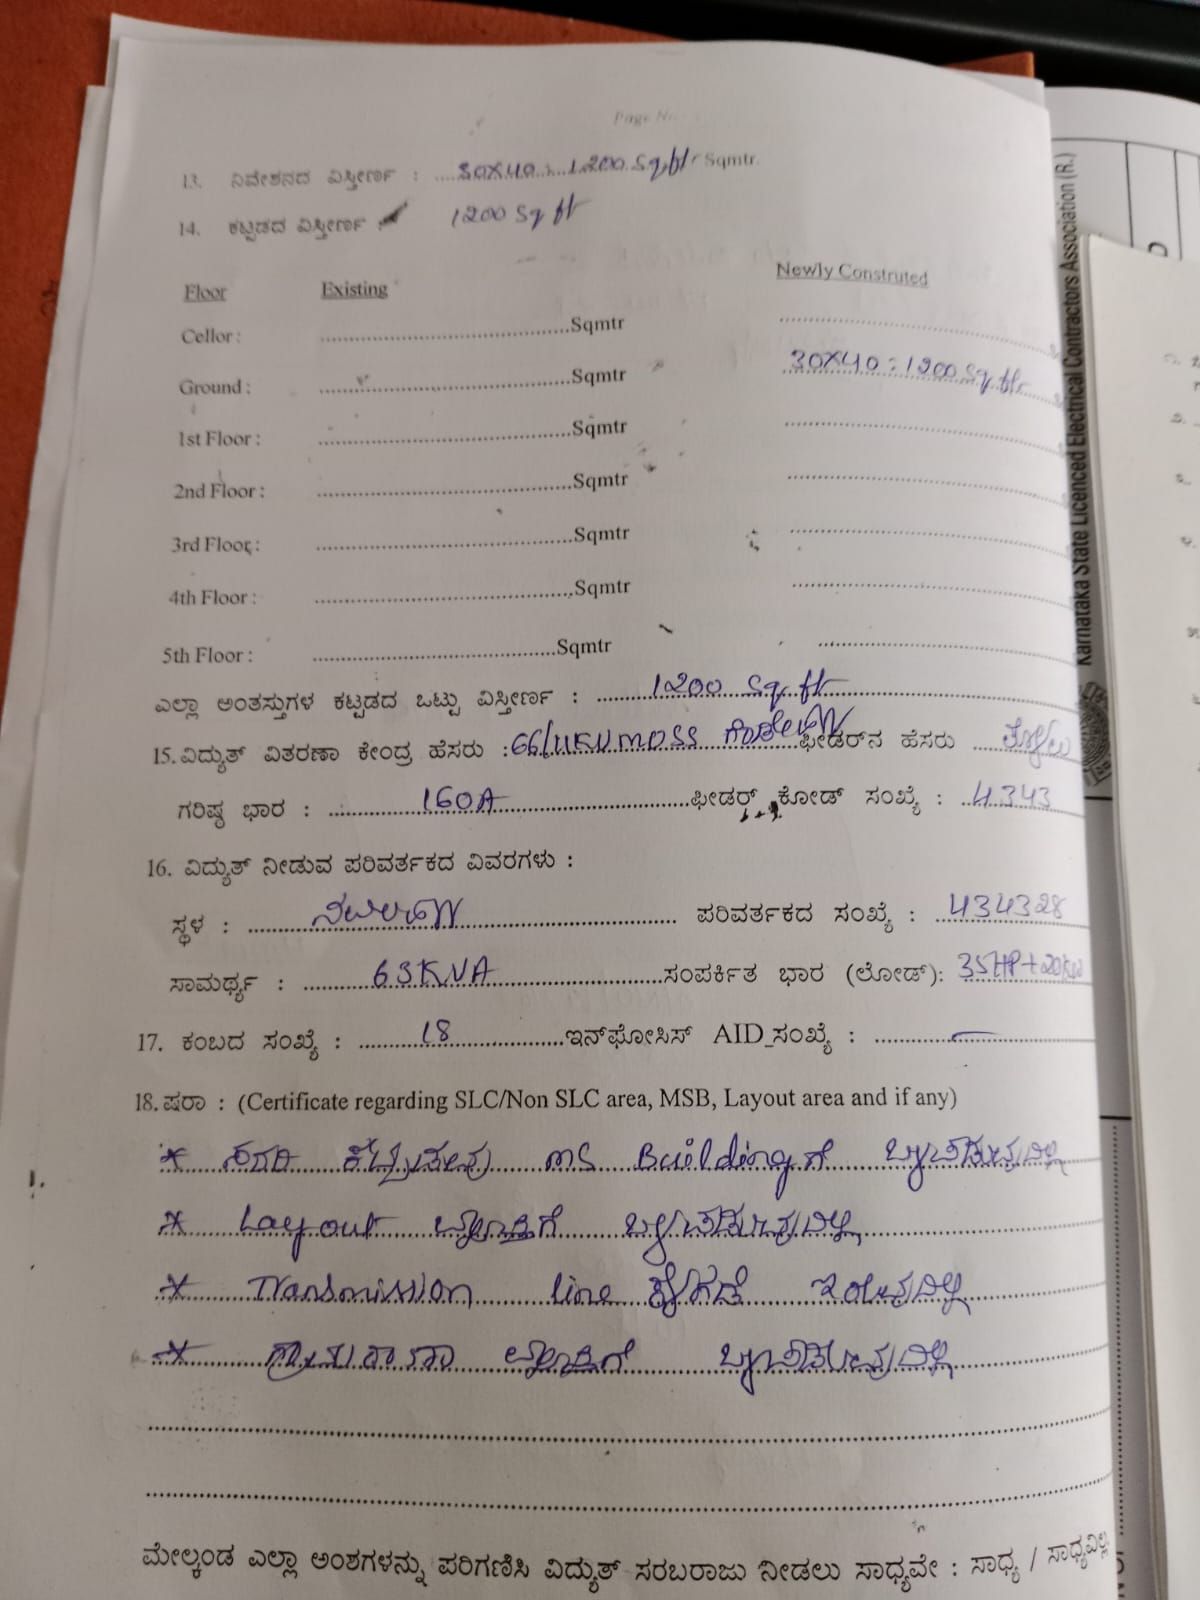 Page No.
13. ನಿವೇಶನದ ವಿಸ್ತೀರ್ಣ : 30X40 = 1200 Sq.ft Sqmtr.
14. ಕಟ್ಟಡದ ವಿಸ್ತೀರ್ಣ : 1200 Sq ft
Floor Existing Newly Construted
Cellor : Sqmtr
Ground : Sqmtr 30X40 = 1200 Sq.ft
1st Floor : Sqmtr
2nd Floor : Sqmtr
3rd Floor : Sqmtr
4th Floor : Sqmtr
5th Floor : Sqmtr
ಎಲ್ಲಾ ಅಂತಸ್ತುಗಳ ಕಟ್ಟಡದ ಒಟ್ಟು ವಿಸ್ತೀರ್ಣ : 1200 Sq.ft
15. ವಿದ್ಯುತ್ ವಿತರಣಾ ಕೇಂದ್ರ ಹೆಸರು : 66/11KV MUSS ಫೀಡರ್‌ನ ಹೆಸರು
ಗರಿಷ್ಠ ಭಾರ : 160A ಫೀಡರ್ ಕೋಡ್ ಸಂಖ್ಯೆ : 4343
16. ವಿದ್ಯುತ್ ನೀಡುವ ಪರಿವರ್ತಕದ ವಿವರಗಳು :
ಸ್ಥಳ : ಪರಿವರ್ತಕದ ಸಂಖ್ಯೆ : 434328
ಸಾಮರ್ಥ್ಯ : 63KVA ಸಂಪರ್ಕಿತ ಭಾರ (ಲೋಡ್): 35HP+20KW
17. ಕಂಬದ ಸಂಖ್ಯೆ : 18 ಇನ್‌ಫೋಸಿಸ್ AID ಸಂಖ್ಯೆ : —
18. ಷರಾ : (Certificate regarding SLC/Non SLC area, MSB, Layout area and if any)
* ಸದರಿ ಕಟ್ಟಡವು MS Building ಗೆ ಒಳಪಡುವುದಿಲ್ಲ
* Layout ವ್ಯಾಪ್ತಿಗೆ ಒಳಪಡುವುದಿಲ್ಲ
* Transmission line ಕೆಳಗಡೆ ಇರುವುದಿಲ್ಲ
* ವ್ಯಾಪ್ತಿಗೆ ಒಳಪಡುವುದಿಲ್ಲ
ಮೇಲ್ಕಂಡ ಎಲ್ಲಾ ಅಂಶಗಳನ್ನು ಪರಿಗಣಿಸಿ ವಿದ್ಯುತ್ ಸರಬರಾಜು ನೀಡಲು ಸಾಧ್ಯವೇ : ಸಾಧ್ಯ / ಸಾಧ್ಯವಿಲ್ಲ
Karnataka State Licenced Electrical Contractors Association (R.)